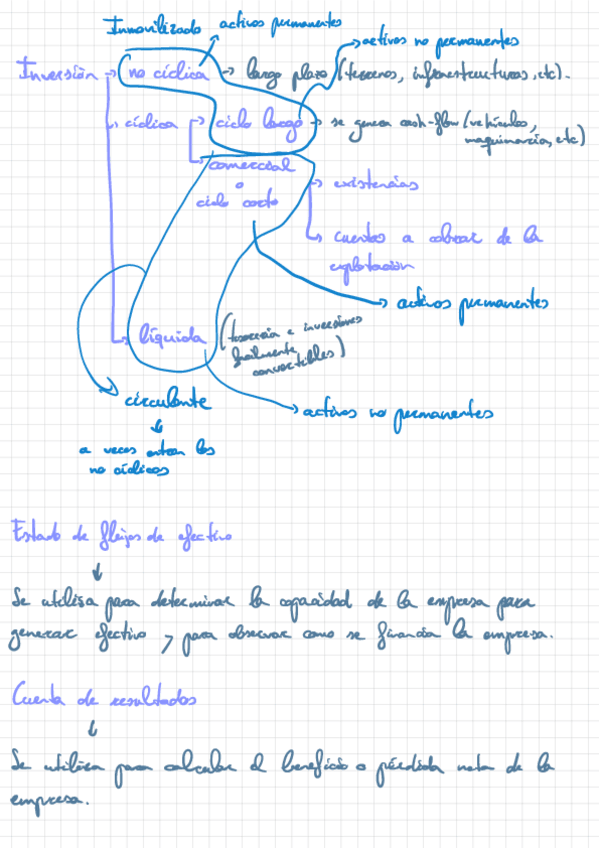 Inmovilizado activos permanentes
→ activos no permanentes
Inversión → no cíclica → largo plazo (terrenos, infraestructuras, etc).
→ cíclica → ciclo largo → se genera cash-flow (vehículos,
maquinaria, etc)
→ comercial
o
ciclo corto
→ existencias
→ cuentas a cobrar de la
explotación
→ activos permanentes
→ líquida (tesorería e inversiones
fácilmente
convertibles)
circulante
→ activos no permanentes
a veces entran los
no cíclicos
Estado de flujos de efectivo
Se utiliza para determinar la capacidad de la empresa para
generar efectivo y para observar como se financia la empresa.
Cuenta de resultados
Se utiliza para calcular el beneficio o pérdida neta de la
empresa.